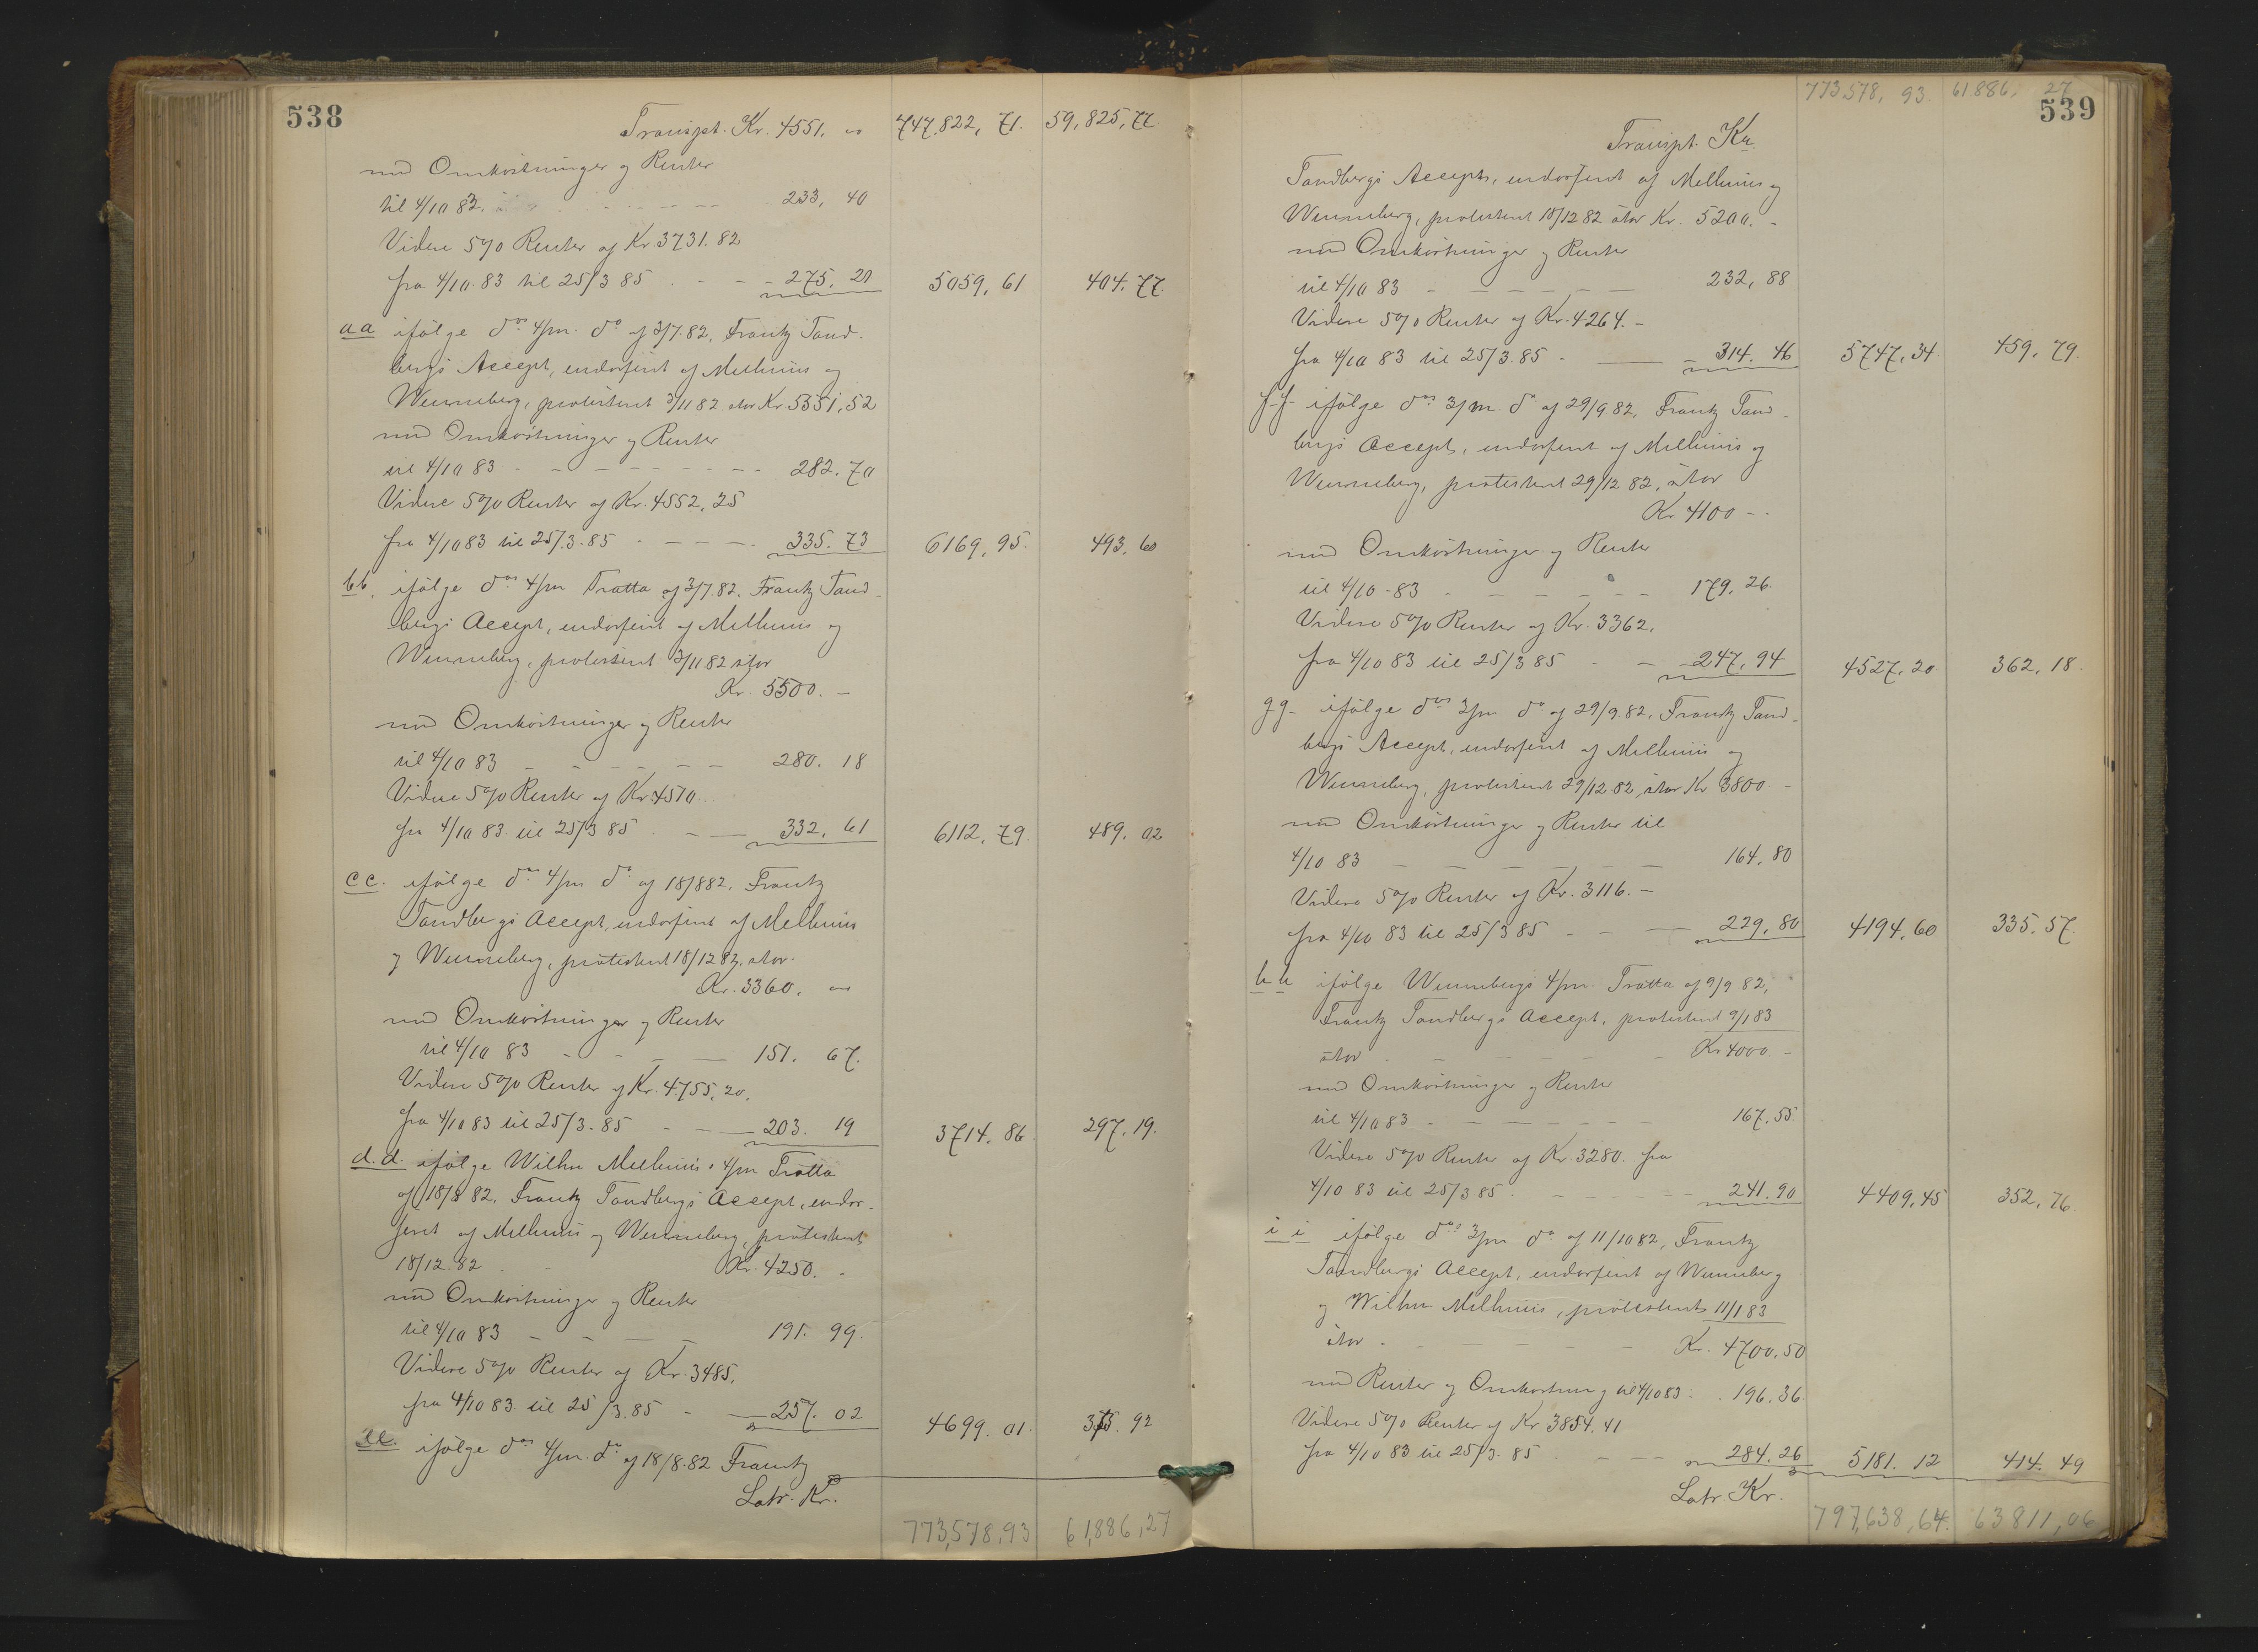 538
Transpt. Kr. 4551. " 747,822, 71. 59,825, 77.
med Omkostninger og Renter
til 4/10 83. - - - - 233, 40
Videre 5% Renter af Kr. 3731. 82
fra 4/10 83 til 25/3 85 - - - 275, 21 5059, 61 404. 77.
aa ifølge ds. 4/m. do af 3/7. 82, Frantz Tand-
bergs Accept, endosseret af Melhuus og
Wenneberg, protesteret 3/11 82 stor Kr. 5551, 52
med Omkostninger og Renter
til 4/10 83 - - - - - - - 282. 70
Videre 5% Renter af Kr. 4552, 25
fra 4/10 83 til 25/3. 85 - - - - 335. 73 6169, 95. 493, 60
bb. ifølge ds. 4/m Tratta af 3/7. 82, Frantz Tand-
bergs Accept, endosseret af Melhuus og
Wenneberg, protesteret 3/11 82 stor
Kr. 5500. -
med Omkostninger og Renter
til 4/10 83 - - - - - - 280. 18
Videre 5% Renter af Kr 4510.
fra 4/10 83 til 25/3 85 - - 332, 61 6112, 79. 489. 02
cc. ifølge ds. 4/m do af 18/8 82, Frantz
Tandbergs Accept, endosseret af Melhuus
og Wenneberg, protesteret 18/12 82, stor
Kr. 3360, "
med Omkostninger og Renter
til 4/10 83 - - - - 151. 67.
Videre 5% Renter af Kr. 4755, 20.
fra 4/10 83 til 25/3. 85 - - - 203. 19 3714. 86. 297. 19.
d.d. ifølge Wilhm Melhuus's 4/m Tratta
af 18/8 82, Frantz Tandbergs Accept, endos-
seret af Melhuus og Wenneberg, protesteret
18/12. 82 - - Kr. 4250. -
med Omkostninger og Renter
til 4/10 83 - - - - 191. 99.
Videre 5% Renter af Kr. 3485,
fra 4/10 83 til 25/3. 85 - - 257. 02 4699. 01. 375. 92
ee. ifølge ds. 4/m. do af 18/8. 82 Frantz
Latr. Kr.
773,578,93 61,886,27
773.578, 93. 61.886, 27
539
Transpt. Kr.
Tandbergs Accept, endosseret af Melhuus og
Wenneberg, protesteret 18/12 82 stor Kr. 5200. -
med Omkostninger og Renter
til 4/10 83 - - - - - - 232, 88
Videre 5% Renter af Kr. 4264. -
fra 4/10 83 til 25/3. 85 - - - 314. 46 5747, 34. 459, 79.
ff- ifølge ds. 3/m. do af 29/9 82, Frantz Tand-
bergs Accept, endosseret af Melhuus og
Wenneberg, protesteret 29/12 82, stor
Kr 4100 - -
med Omkostninger og Renter
til 4/10 - 83 - - - - - - 179, 26.
Videre 5% Renter af Kr. 3362,
fra 4/10 83 til 25/3 85 - - 247, 94 4527, 20. 362, 18.
gg- ifølge ds. 3/m do af 29/9. 82, Frantz Tand-
bergs Accept, endosseret af Melhuus og
Wenneberg, protesteret 29/12 82, stor Kr 3800. -
med Omkostninger og Renter til
4/10 83 - - - - - - 164, 80
Videre 5% Renter af Kr. 3116. -
fra 4/10 83 til 25/3 85 - - - 229, 80 4194, 60 335. 57.
hh ifølge Wennebergs 4/m. Tratta af 9/9 82,
Frantz Tandbergs Accept, protesteret 9/1 83
stor - - - - - - Kr 4000. -
med Omkostninger og Renter
til 4/10 83 - - - - - - - 167. 55.
Videre 5% Renter af Kr. 3280. fra
4/10 83 til 25/3 85. - - - - - - 241. 90 4409, 45 352, 76.
ii ifølge ds. 3/m do af 11/10 82, Frantz
Tandbergs Accept, endosseret af Wenneberg
og Wilhm Melhuus, protesteret 11/1 83
stor - - - - - - Kr. 4700. 50
med Renter og Omkostning til 4/10 83 - . 196. 36.
Videre 5% Renter af Kr 3854. 41
fra 4/10 83 til 25/3. 85 - - - - 284. 26 5181. 12 414. 49
Latr. Kr.
797,638,64. 63811,06